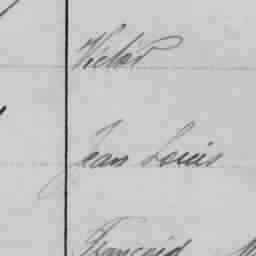 Victor
Jean Louis
François